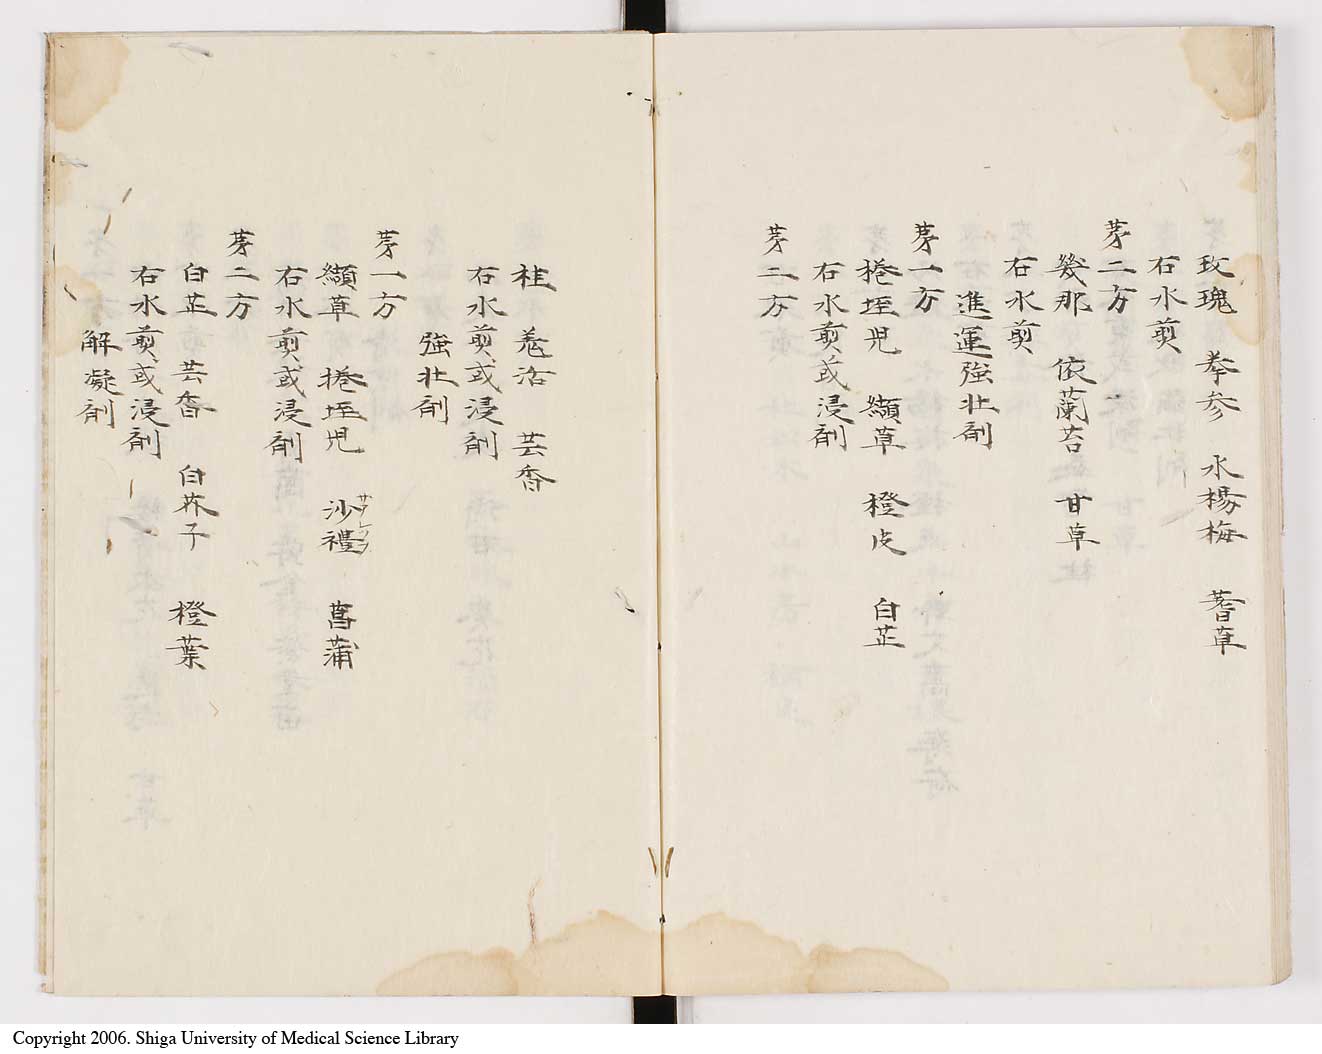 玫瑰 拳参 水楊梅 蓍草
右水煎
茅二方
幾那 依蘭苔 甘草
右水煎
進運強壮剤
茅一方
捲埀児 纈草 橙皮 白芷
右水煎或浸剤
茅二方
桂 羗活 芸香
右水煎、或浸剤
強壮剤
茅一方
纈草 捲垤児 沙禮 菖蒲
サレフ
右水煎、或浸剤
茅二方
白芷 芸香 白芥子 橙葉
右水煎、或浸剤
解凝剤
Copyright 2006. Shiga University of Medical Science Library